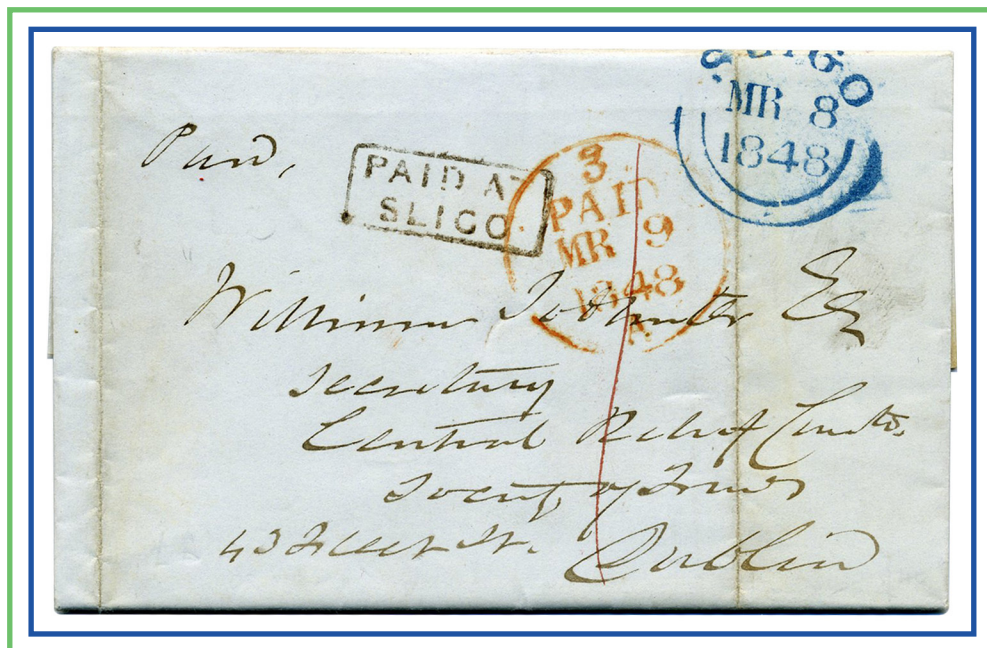 SLIGO
MR 8
1848
Paid,
PAID AT
SLIGO
3
PAID
MR 9
1848
A
William Todhunter Esq
Secretary
Central Relief Comtee.
Society of Friends
43 Fleet St.
Dublin